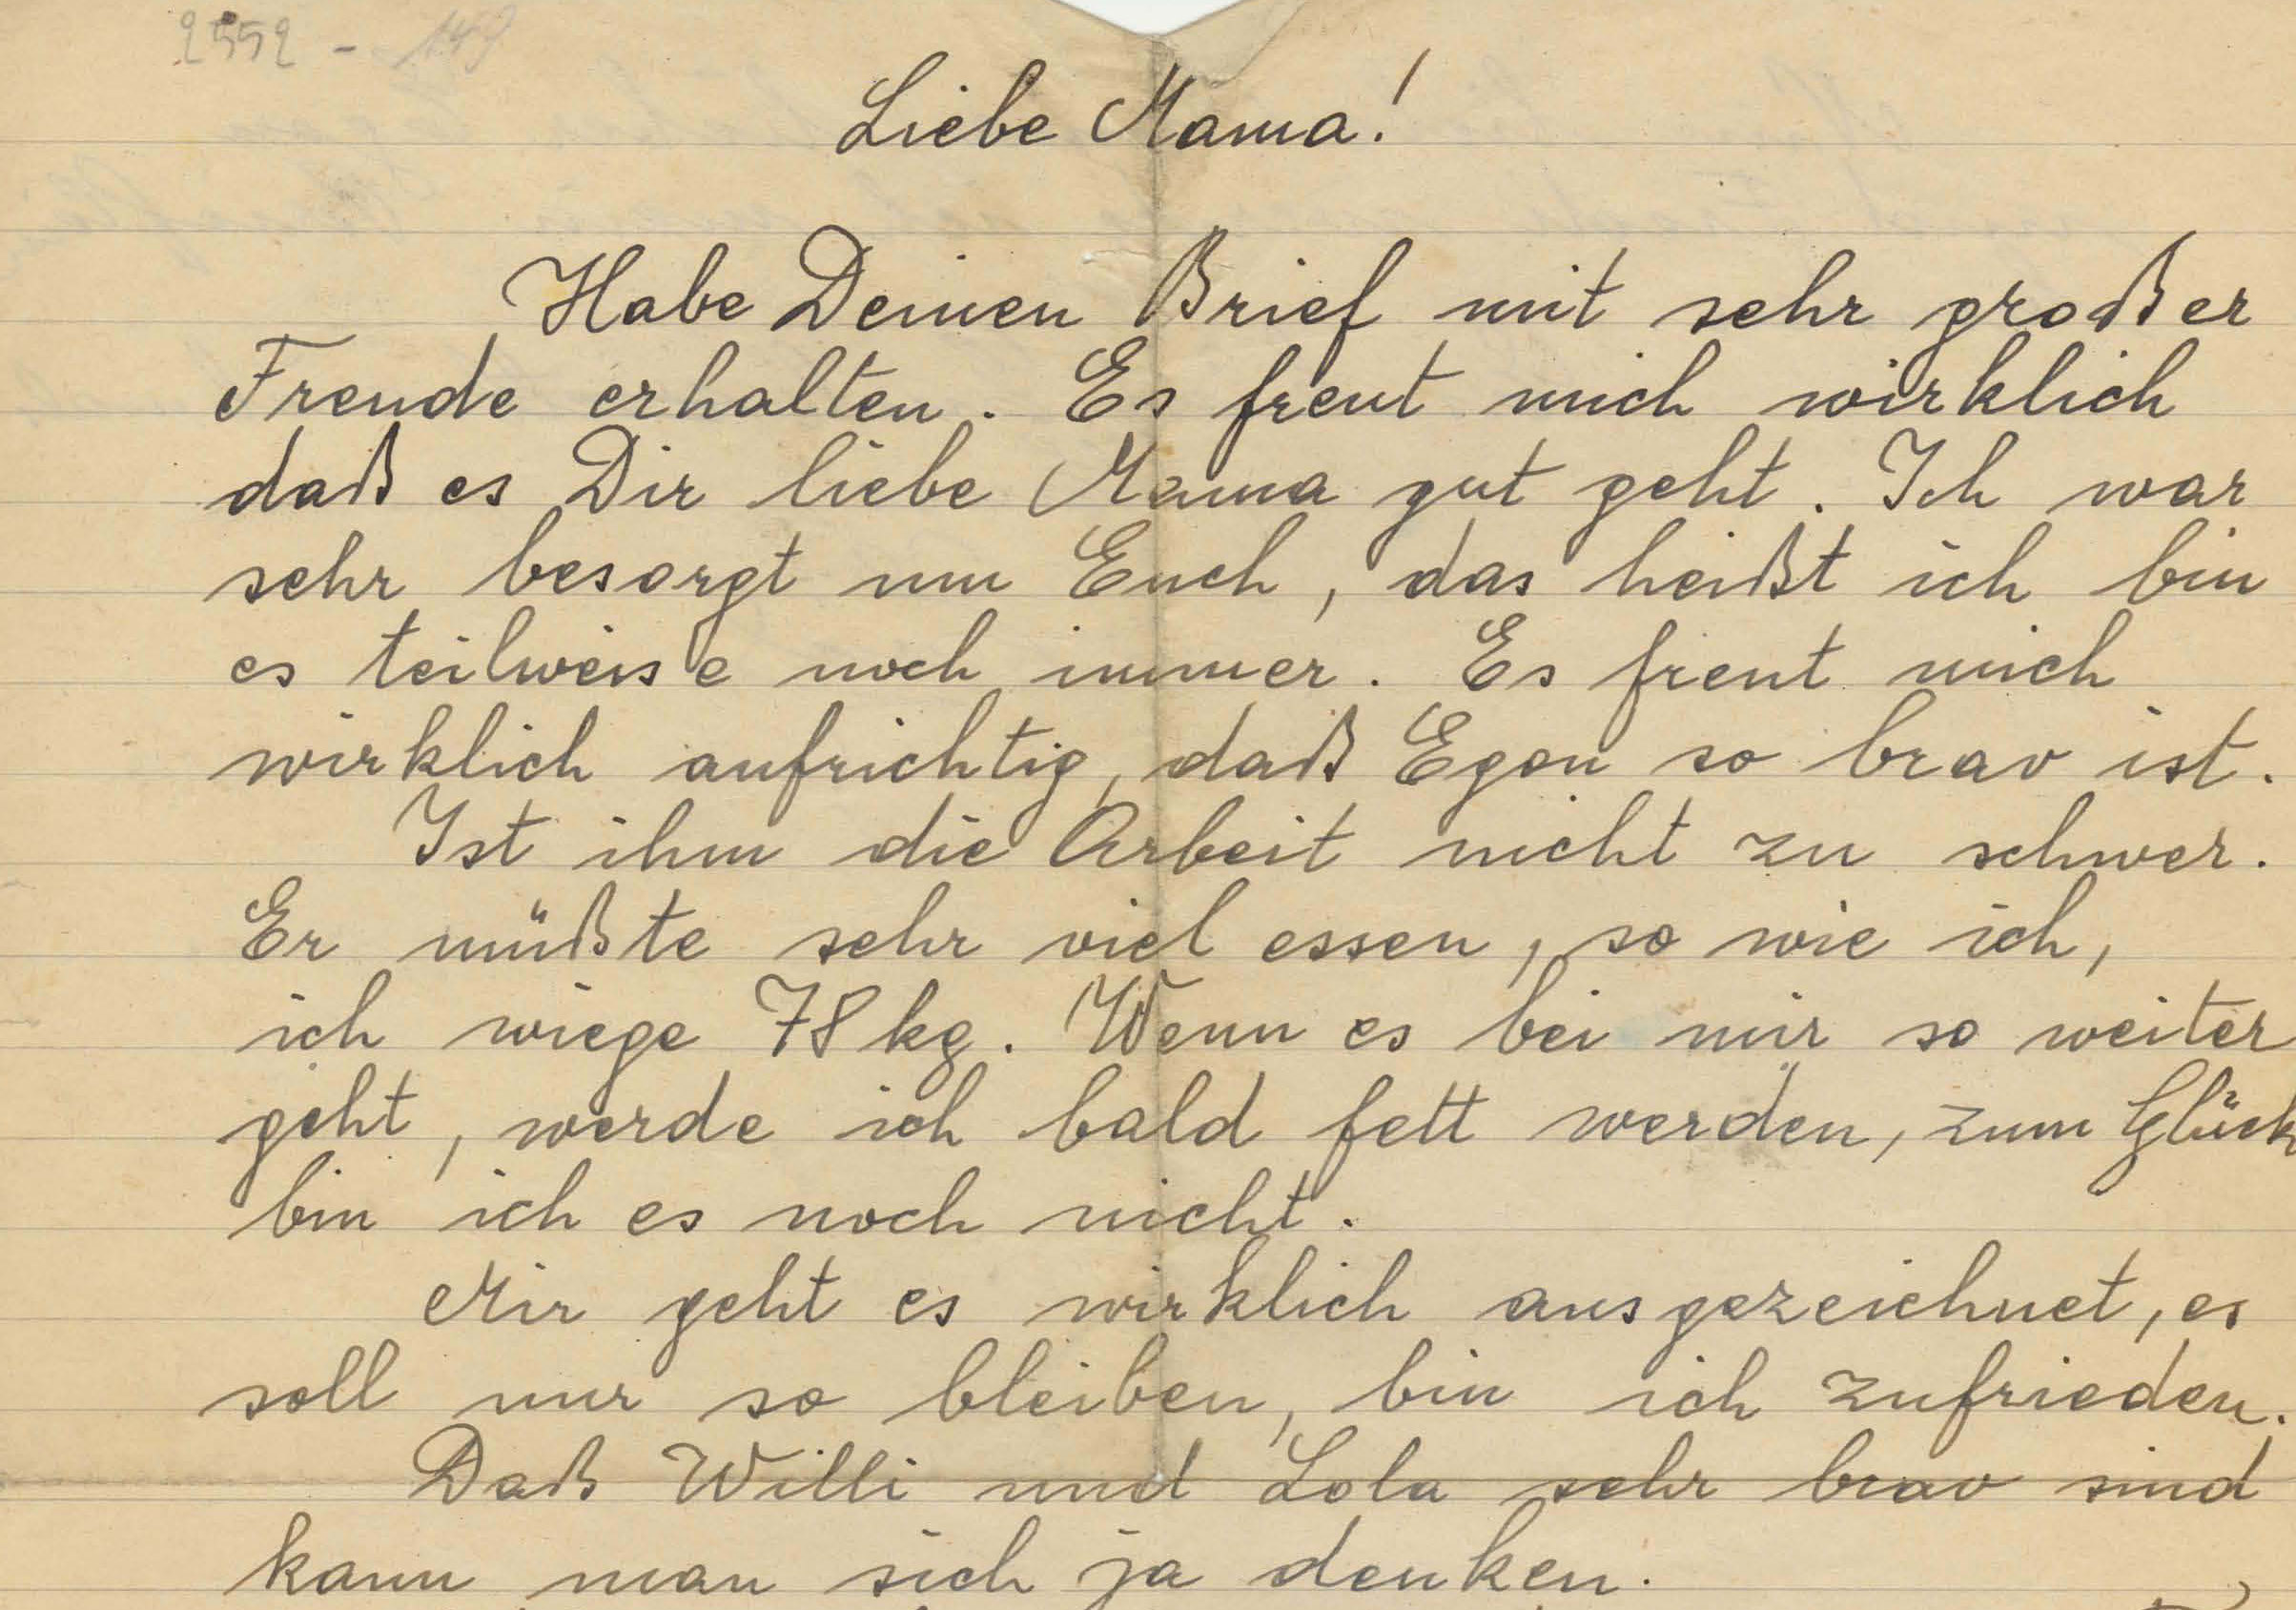 2552 - 149
Liebe Mama!
Habe Deinen Brief mit sehr großer
Freude erhalten. Es freut mich wirklich
daß es Dir liebe Mama gut geht. Ich war
sehr besorgt um Euch, das heißt ich bin
es teilweise noch immer. Es freut mich
wirklich aufrichtig, daß Egon so brav ist.
Ist ihm die Arbeit nicht zu schwer.
Er müßte sehr viel essen, so wie ich,
ich wiege 78 kg. Wenn es bei mir so weiter
geht, werde ich bald fett werden, zum Glück
bin ich es noch nicht.
Mir geht es wirklich ausgezeichnet, es
soll nur so bleiben, bin ich zufrieden.
Daß Willi und Lola sehr brav sind
kann man sich ja denken.